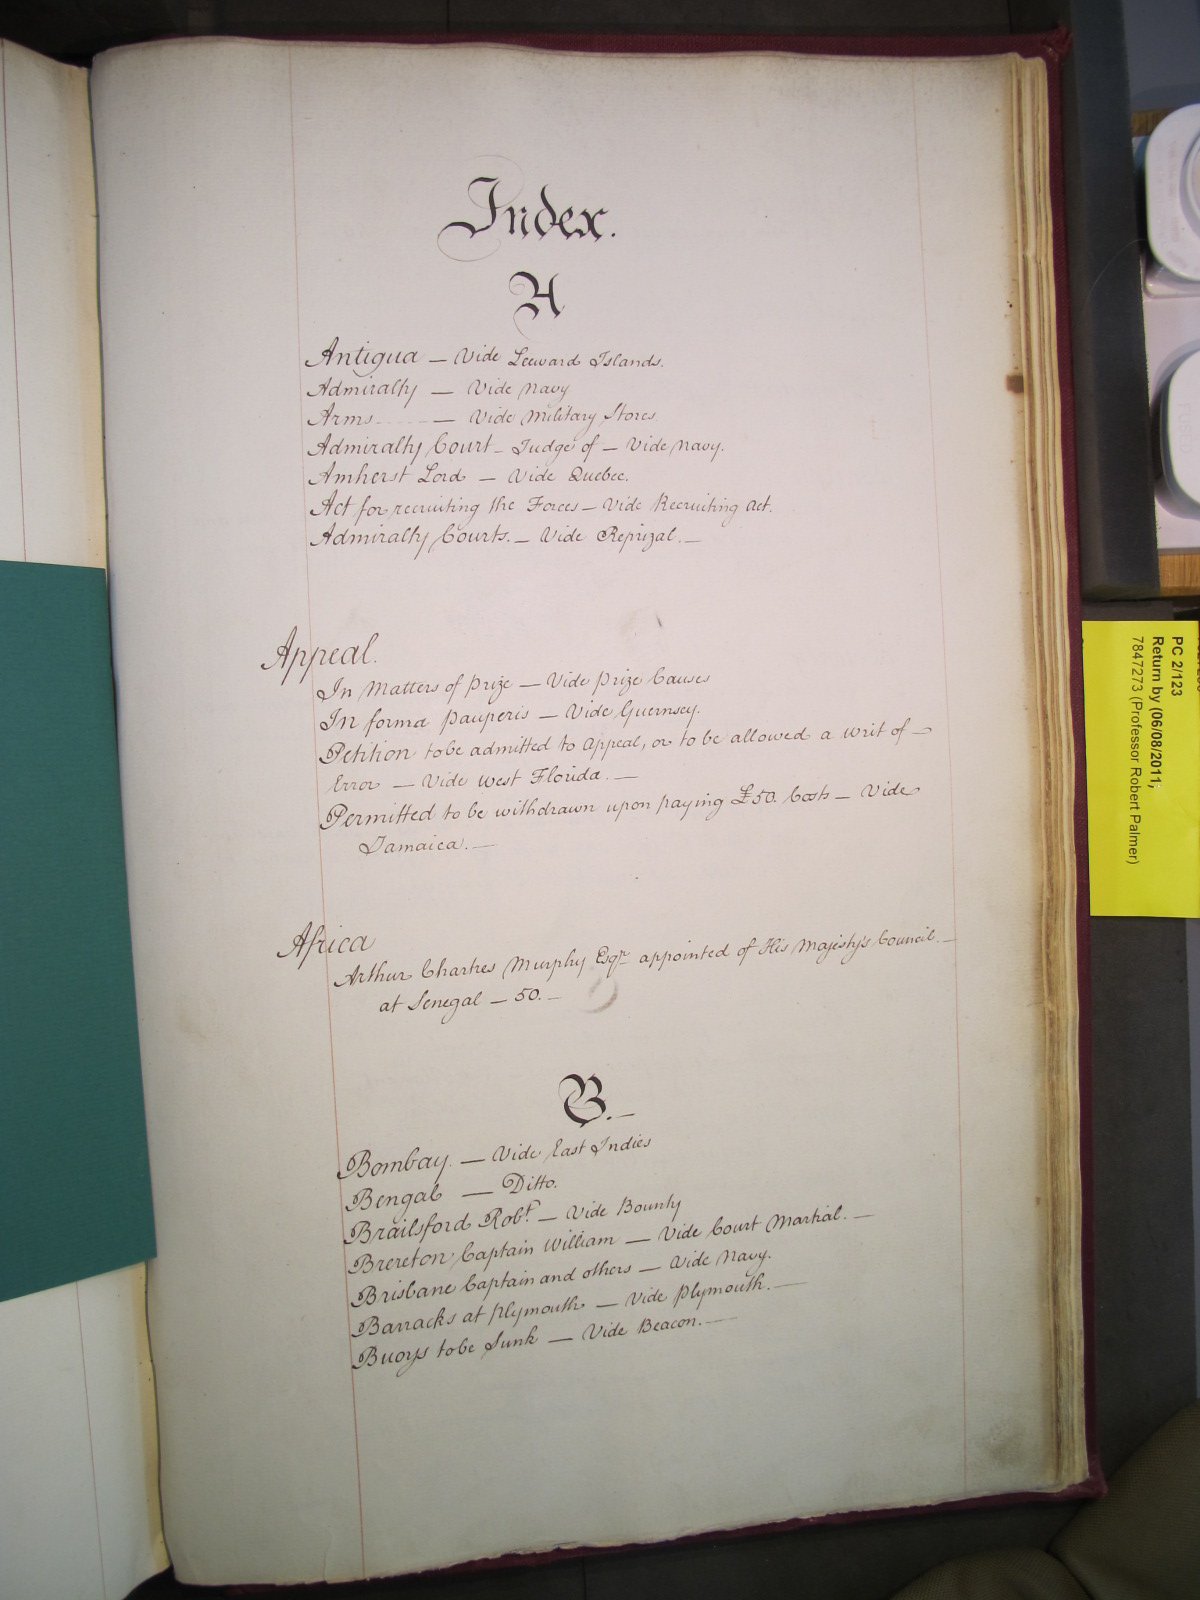 Index.
A
Antigua — Vide Leeward Islands.
Admiralty — Vide Navy
Arms ..... — Vide Military Stores
Admiralty Court — Judge of — Vide Navy.
Amherst Lord — Vide Quebec.
Act for recruiting the Forces — Vide Recruiting Act.
Admiralty Courts. — Vide Reprizal. —
Appeal.
In Matters of Prize — Vide Prize Causes
In forma pauperis — Vide Guernsey.
Petition to be admitted to Appeal, or to be allowed a writ of —
Error — Vide West Florida. —
Permitted to be withdrawn upon paying £50 Costs — Vide
Jamaica. —
Africa
Arthur Chartres Murphy Esqr. appointed of His Majesty's Council. —
at Senegal — 50. —
B. —
Bombay. — Vide East Indies
Bengal — Ditto.
Brailsford Robt. — Vide Bounty
Brereton Captain William — Vide Court Martial. —
Brisbane Captain and others — Vide Navy.
Barracks at Plymouth — Vide Plymouth. —
Buoys to be Sunk — Vide Beacon. —
PC 2/123
Return by (06/08/2011;
7847273 (Professor Robert Palmer)